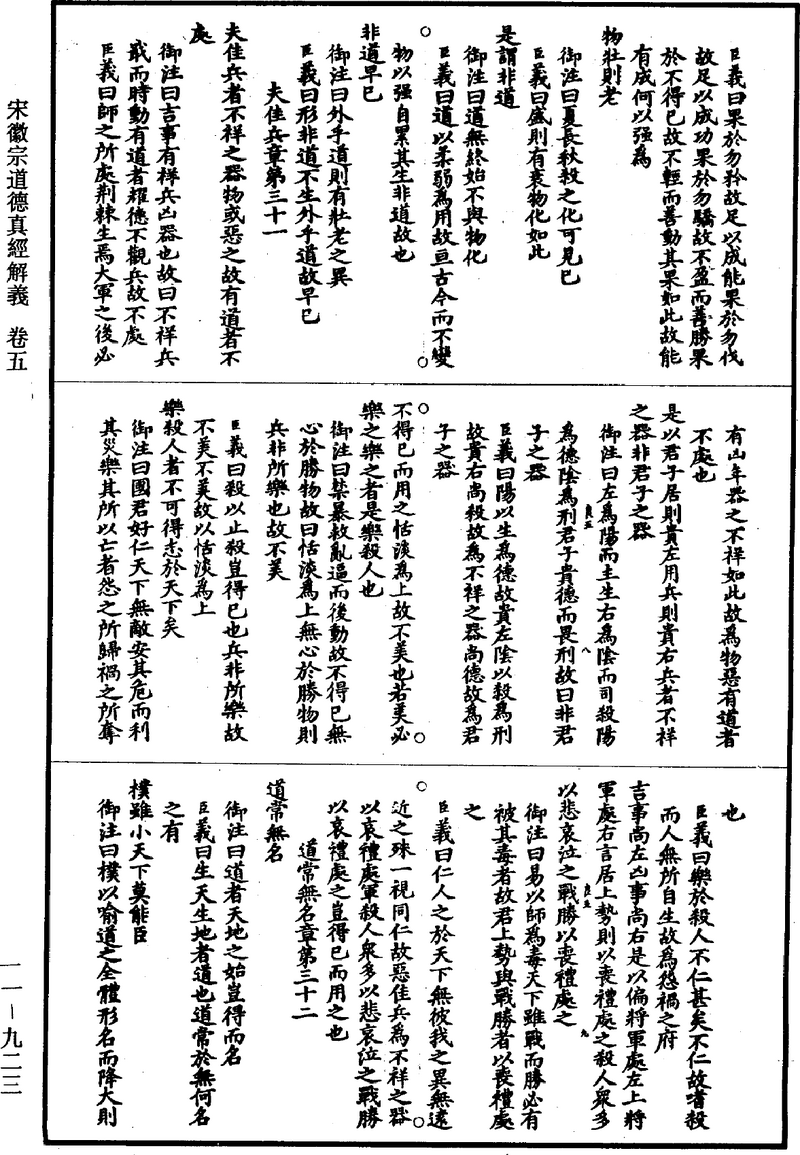 宋徽宗道德真經解義　卷五
臣義曰果於勿矜故足以成能果於勿伐
故足以成功果於勿驕故不盈而善勝果
於不得已故不輕而善動其果如此故能
有成何以强為
物壯則老
御注曰夏長秋殺之化可見已
臣義曰盛則有衰物化如此
是謂非道
御注曰道無終始不與物化
臣義曰道以柔弱為用故亘古今而不變
物以强自累其生非道故也
非道早已
御注曰外乎道則有壯老之異
臣義曰形非道不生外乎道故早已
夫佳兵章第三十一
夫佳兵者不祥之器物或惡之故有道者不
處
御注曰吉事有祥兵凶器也故曰不祥兵
戢而時動有道者耀德不觀兵故不處
臣義曰師之所處荆棘生焉大軍之後必
有凶年器之不祥如此故為物惡有道者
不處也
是以君子居則貴左用兵則貴右兵者不祥
之器非君子之器
御注曰左為陽而主生右為陰而司殺陽
為德陰為刑君子貴德而畏刑故曰非君
子之器
臣義曰陽以生為德故貴左陰以殺為刑
故貴右尚殺故為不祥之器尚德故為君
子之器
不得已而用之恬淡為上故不美也若美必
樂之樂之者是樂殺人也
御注曰禁暴救亂逼而後動故不得已無
心於勝物故曰恬淡為上無心於勝物則
兵非所樂也故不美
臣義曰殺以止殺豈得已也兵非所樂故
不美不美故以恬淡為上
樂殺人者不可得志於天下矣
御注曰國君好仁天下無敵安其危而利
其災樂其所以亡者怨之所歸禍之所奪
也
臣義曰樂於殺人不仁甚矣不仁故嗜殺
而人無所自生故為怨禍之府
吉事尚左凶事尚右是以偏將軍處左上將
軍處右言居上勢則以喪禮處之殺人衆多
以悲哀泣之戰勝以喪禮處之
御注曰易以師為毒天下雖戰而勝必有
被其毒者故君上勢與戰勝者以喪禮處
之
臣義曰仁人之於天下無彼我之異無遠
近之殊一視同仁故惡佳兵為不祥之器
以哀禮處軍殺人衆多以悲哀泣之戰勝
以哀禮處之豈得已而用之也
道常無名章第三十二
道常無名
御注曰道者天地之始豈得而名
臣義曰生天生地者道也道常於無何名
之有
樸雖小天下莫能臣
御注曰樸以喻道之全體形名而降大則
一一－九二三